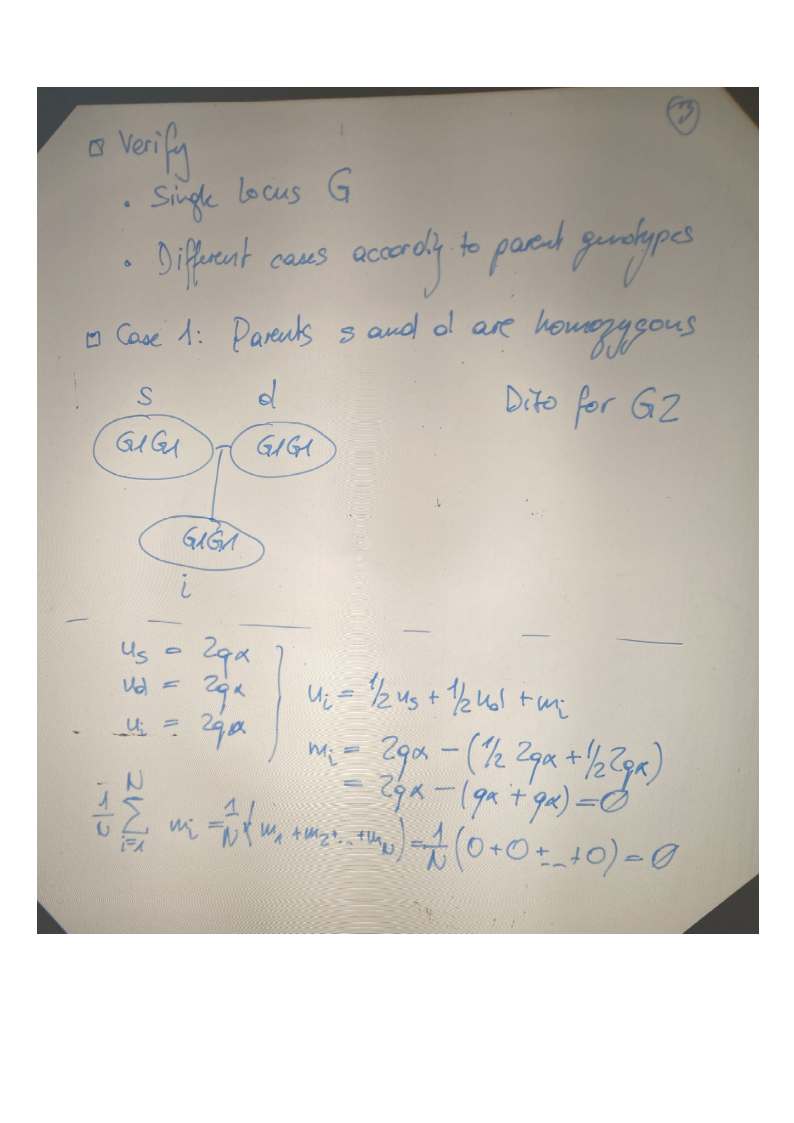 3
Verify
• Single locus G
• Different cases accordly to parent genotypes
Case 1: Parents s and d are homozygous
s d
Dito for G2
G1G1 G1G1
G1G1
i
us = 2qα
ud = 2qα
ui = 2qα
ui = 1/2 us + 1/2 ud + mi
mi = 2qα - (1/2 2qα + 1/2 2qα)
= 2qα - (qα + qα) = 0
1/N ∑ i=1 N mi = 1/N (m1 + m2 + ... + mN) = 1/N (0 + 0 + ... + 0) = 0